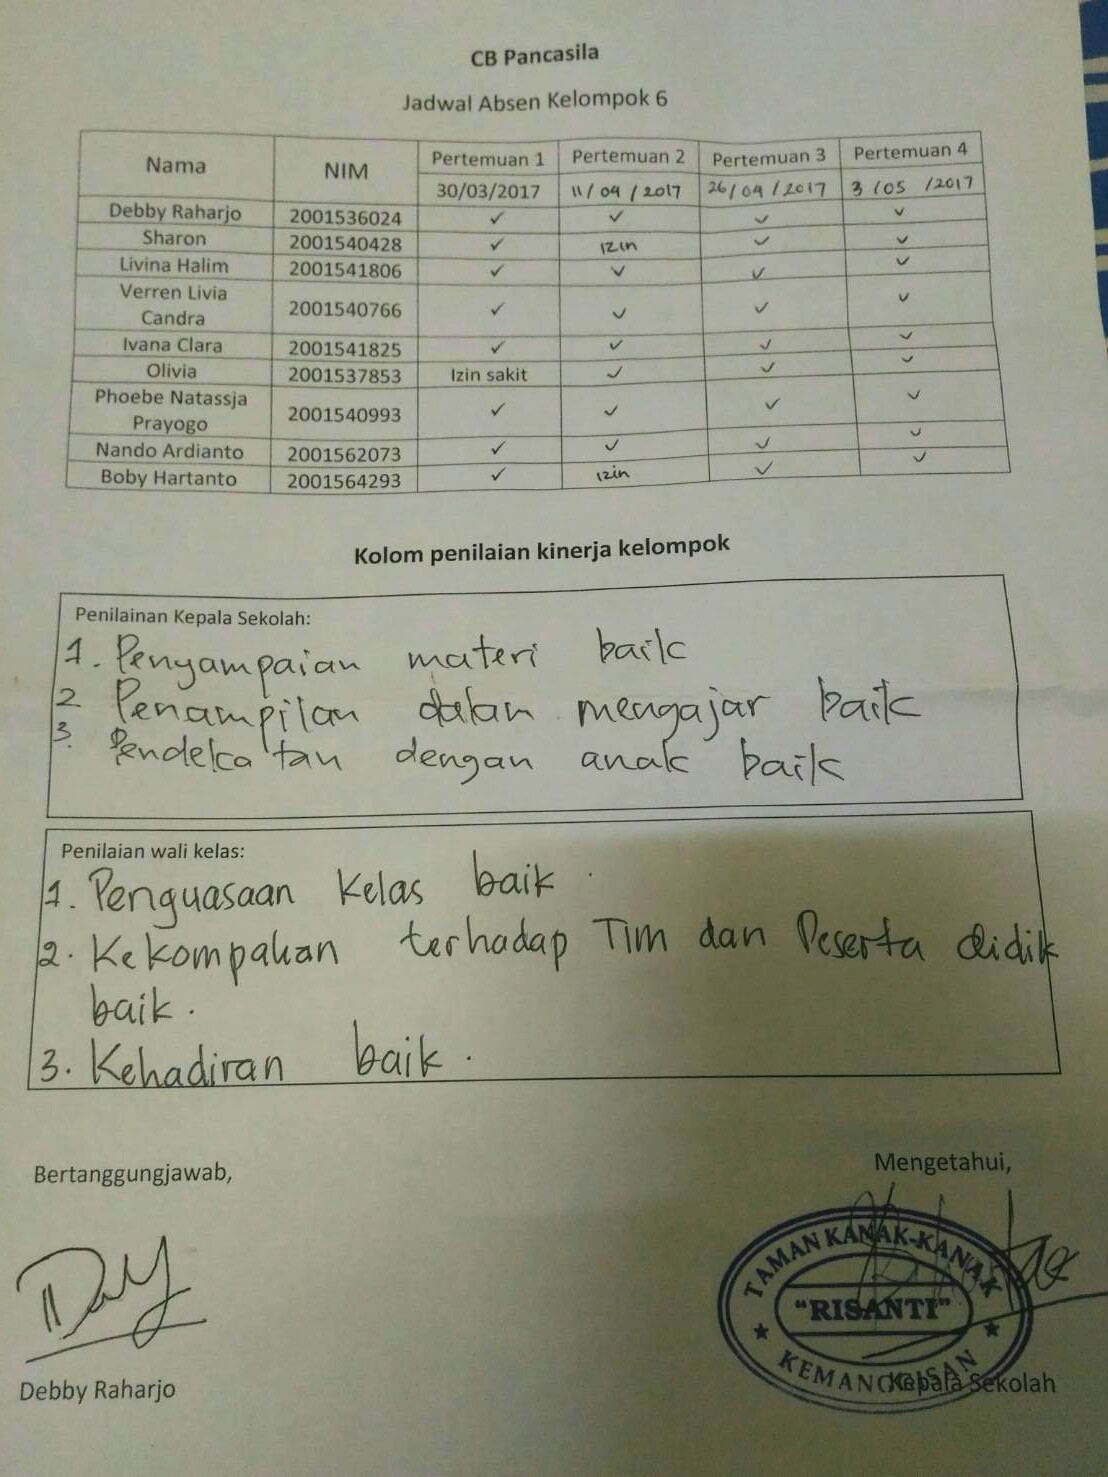 CB Pancasila
Jadwal Absen Kelompok 6
Nama NIM Pertemuan 1 Pertemuan 2 Pertemuan 3 Pertemuan 4
30/03/2017 11/04/2017 26/04/2017 3/05/2017
Debby Raharjo 2001536024 ✓ ✓ ✓ ✓
Sharon 2001540428 ✓ izin ✓ ✓
Livina Halim 2001541806 ✓ ✓ ✓ ✓
Verren Livia
Candra 2001540766 ✓ ✓ ✓ ✓
Ivana Clara 2001541825 ✓ ✓ ✓ ✓
Olivia 2001537853 Izin sakit ✓ ✓ ✓
Phoebe Natassja
Prayogo 2001540993 ✓ ✓ ✓ ✓
Nando Ardianto 2001562073 ✓ ✓ ✓ ✓
Boby Hartanto 2001564293 ✓ izin ✓ ✓
Kolom penilaian kinerja kelompok
Penilainan Kepala Sekolah:
1. Penyampaian materi baik
2 Penampilan dalam mengajar baik
3. Pendekatan dengan anak baik
Penilaian wali kelas:
1. Penguasaan Kelas baik.
2. Kekompakan terhadap Tim dan Peserta didik
baik.
3. Kehadiran baik.
Bertanggungjawab,
Mengetahui,
TAMAN KANAK-KANAK
"RISANTI"
KEMANGGISAN
Debby Raharjo
Kepala Sekolah